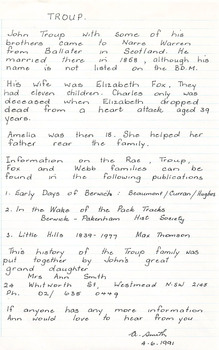 TROUP.
John Troup with some of his
brothers came to Narre Warren
from Ballater in Scotland. He
married there in 1868, although his
name is not listed on the BDM.
His wife was Elizabeth Fox, They
had eleven children. Charles only was
deceased when Elizabeth dropped
dead from a heart attack aged 39
years.
Amelia was then 18. She helped her
father rear the family.
Information on the Rae, Troup,
Fox and Webb families can be
found in the following publications
1. Early Days of Berwick: Beaumont/Curran/Hughes
2. In the Wake of the Pack Tracks
Berwick - Pakenham Hist Society
3. Little Hills 1839-1977 Max Thomson
This history of the Troup family was
put together by John's great
grand daughter
Mrs Ann Smith
Whitworth St, Westmead NSW 2145
Ph. 02/ 635 0449
If anyone has any more information
Ann would love to hear from you
A. Smith
6.1991